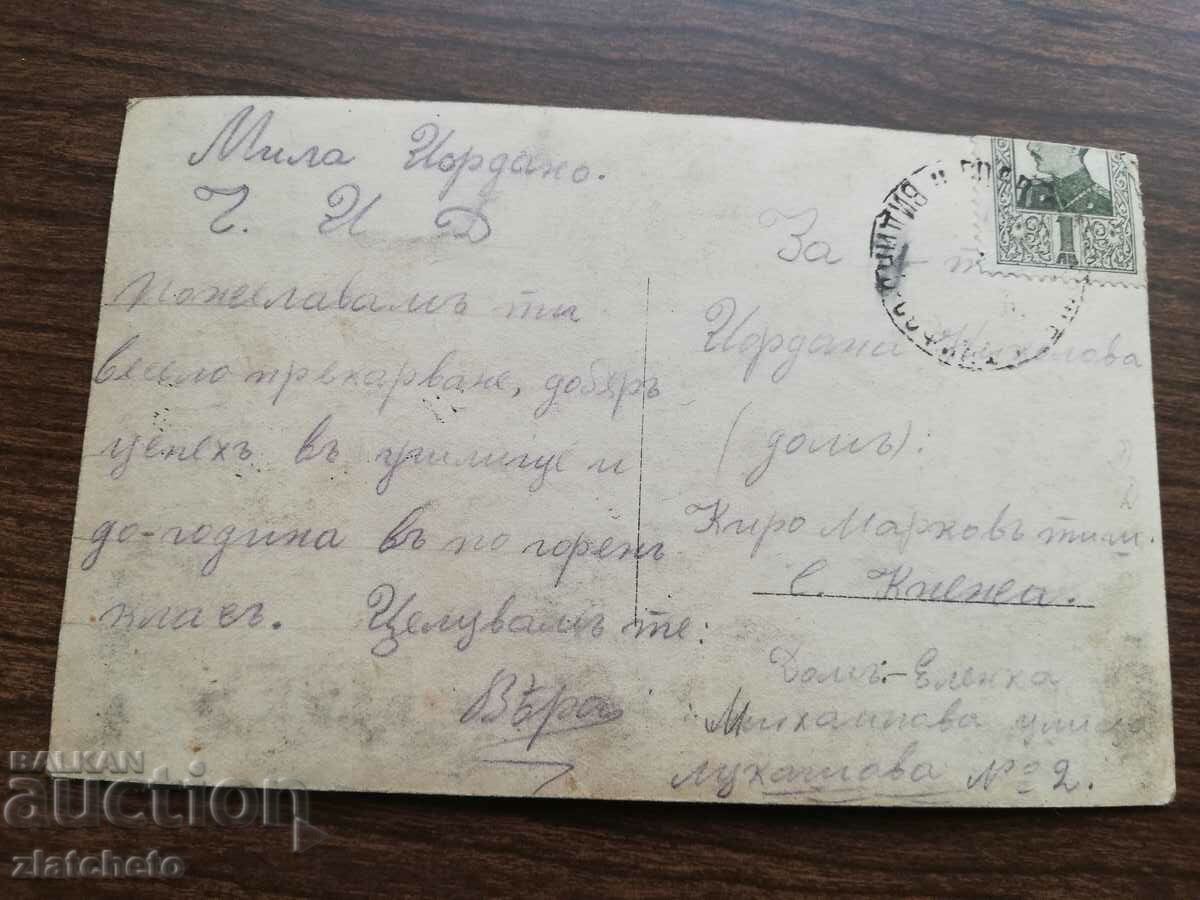 Мила Йордано.
Ч. И Д
пожелавамъ ти
весело прекарване, добъръ
успехъ въ училище и
до-година въ по горенъ
класъ. Целувамъ те:
Вѣра
За
Йордана
(домъ):
Киро Марковъ
с. Кнежа.
Домъ-Еленка
Михайлова улица
№ 2.
1
ЛВ
BALKAN
auction
zlatcheto